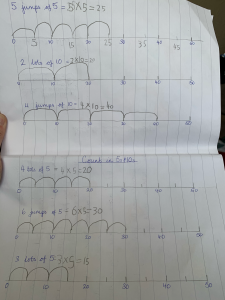 5 jumps of 5 = 5×5 = 25
0 5 15 25 35 45
2 lots of 10 - 2×10=
0 10 20 30 40 50
4 jumps of 10 - 4×10 = 40
0 10 20 30 40 50
Count in 5+10s
4 lots of 5 = 4×5=20
0 10 20 30 40 50
6 jumps of 5 - 6×5=30
0 10 20 30 40 50
3 lots of 5 3×5=15
0 10 20 30 40 50